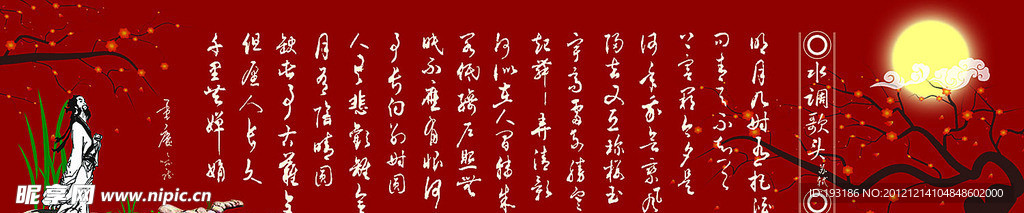 水调歌头
苏轼
明月几时有把酒
问青天不知天
上宫阙今夕是
何年我欲乘风
归去又恐琼楼玉
宇高处不胜寒
起舞弄清影
何似在人间转朱
阁低绮户照无
眠不应有恨何
事长向别时圆
人有悲欢离合
月有阴晴圆
缺此事古难全
但愿人长久
千里共婵娟
昵享网 www.nipic.cn
193186 NO:20121214104848602000